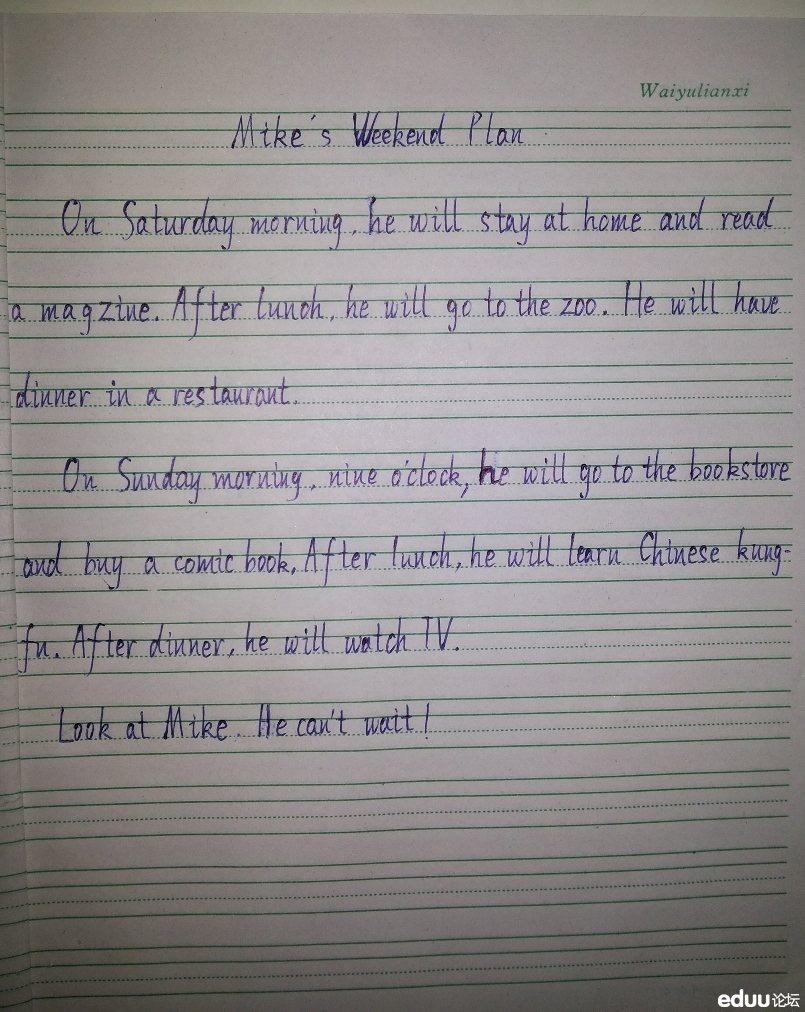 Waiyulianxi
Mike's Weekend Plan
On Saturday morning, he will stay at home and read
a magzine. After lunch, he will go to the zoo. He will have
dinner in a restaurant.
On Sunday morning, nine o'clock, he will go to the bookstore
and buy a comic book. After lunch, he will learn Chinese kung-
fu. After dinner, he will watch TV.
Look at Mike. He can't wait!
eduu论坛